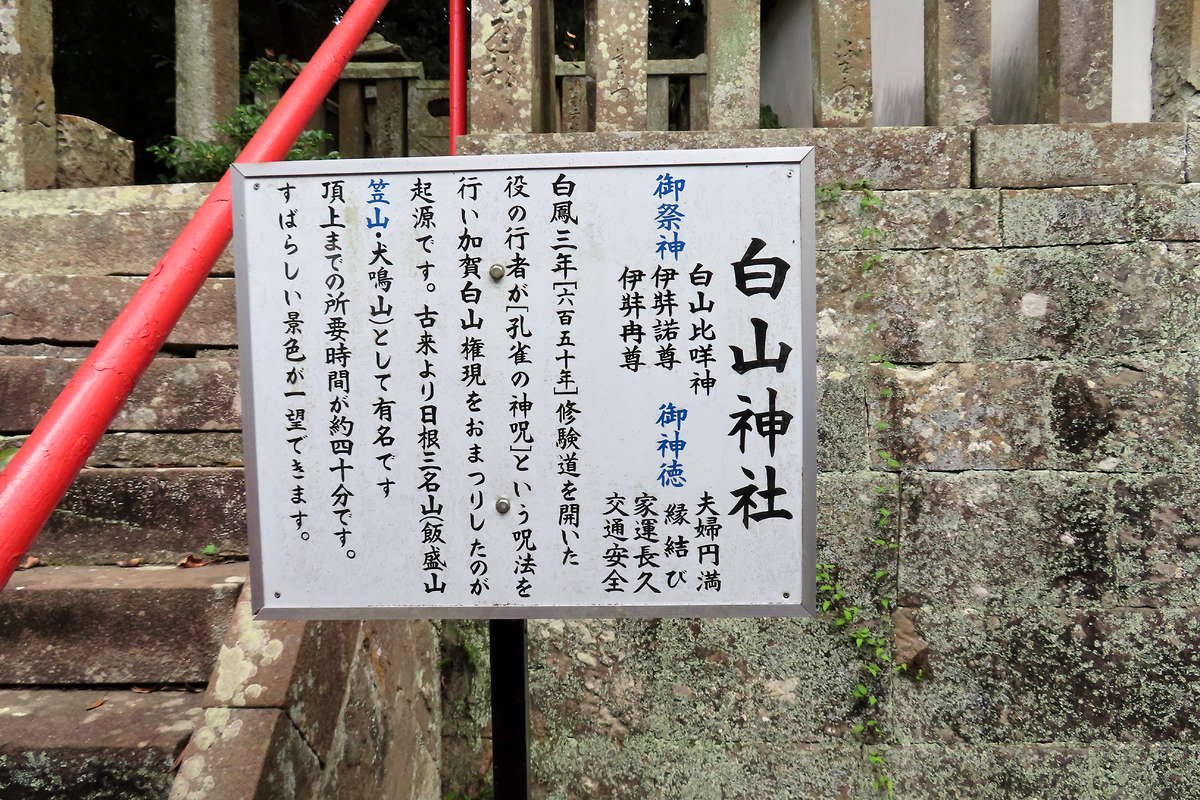 白山神社
御祭神
白山比咩神
伊弉諾尊
伊弉冉尊
御神徳
夫婦円満
縁結び
家運長久
交通安全
白鳳三年［六百五十年］修験道を開いた
役の行者が［孔雀の神呪］という呪法を
行い加賀白山権現をおまつりしたのが
起源です。古来より日根三名山（飯盛山
笠山・犬鳴山）として有名です
頂上までの所要時間が約四十分です。
すばらしい景色が一望できます。